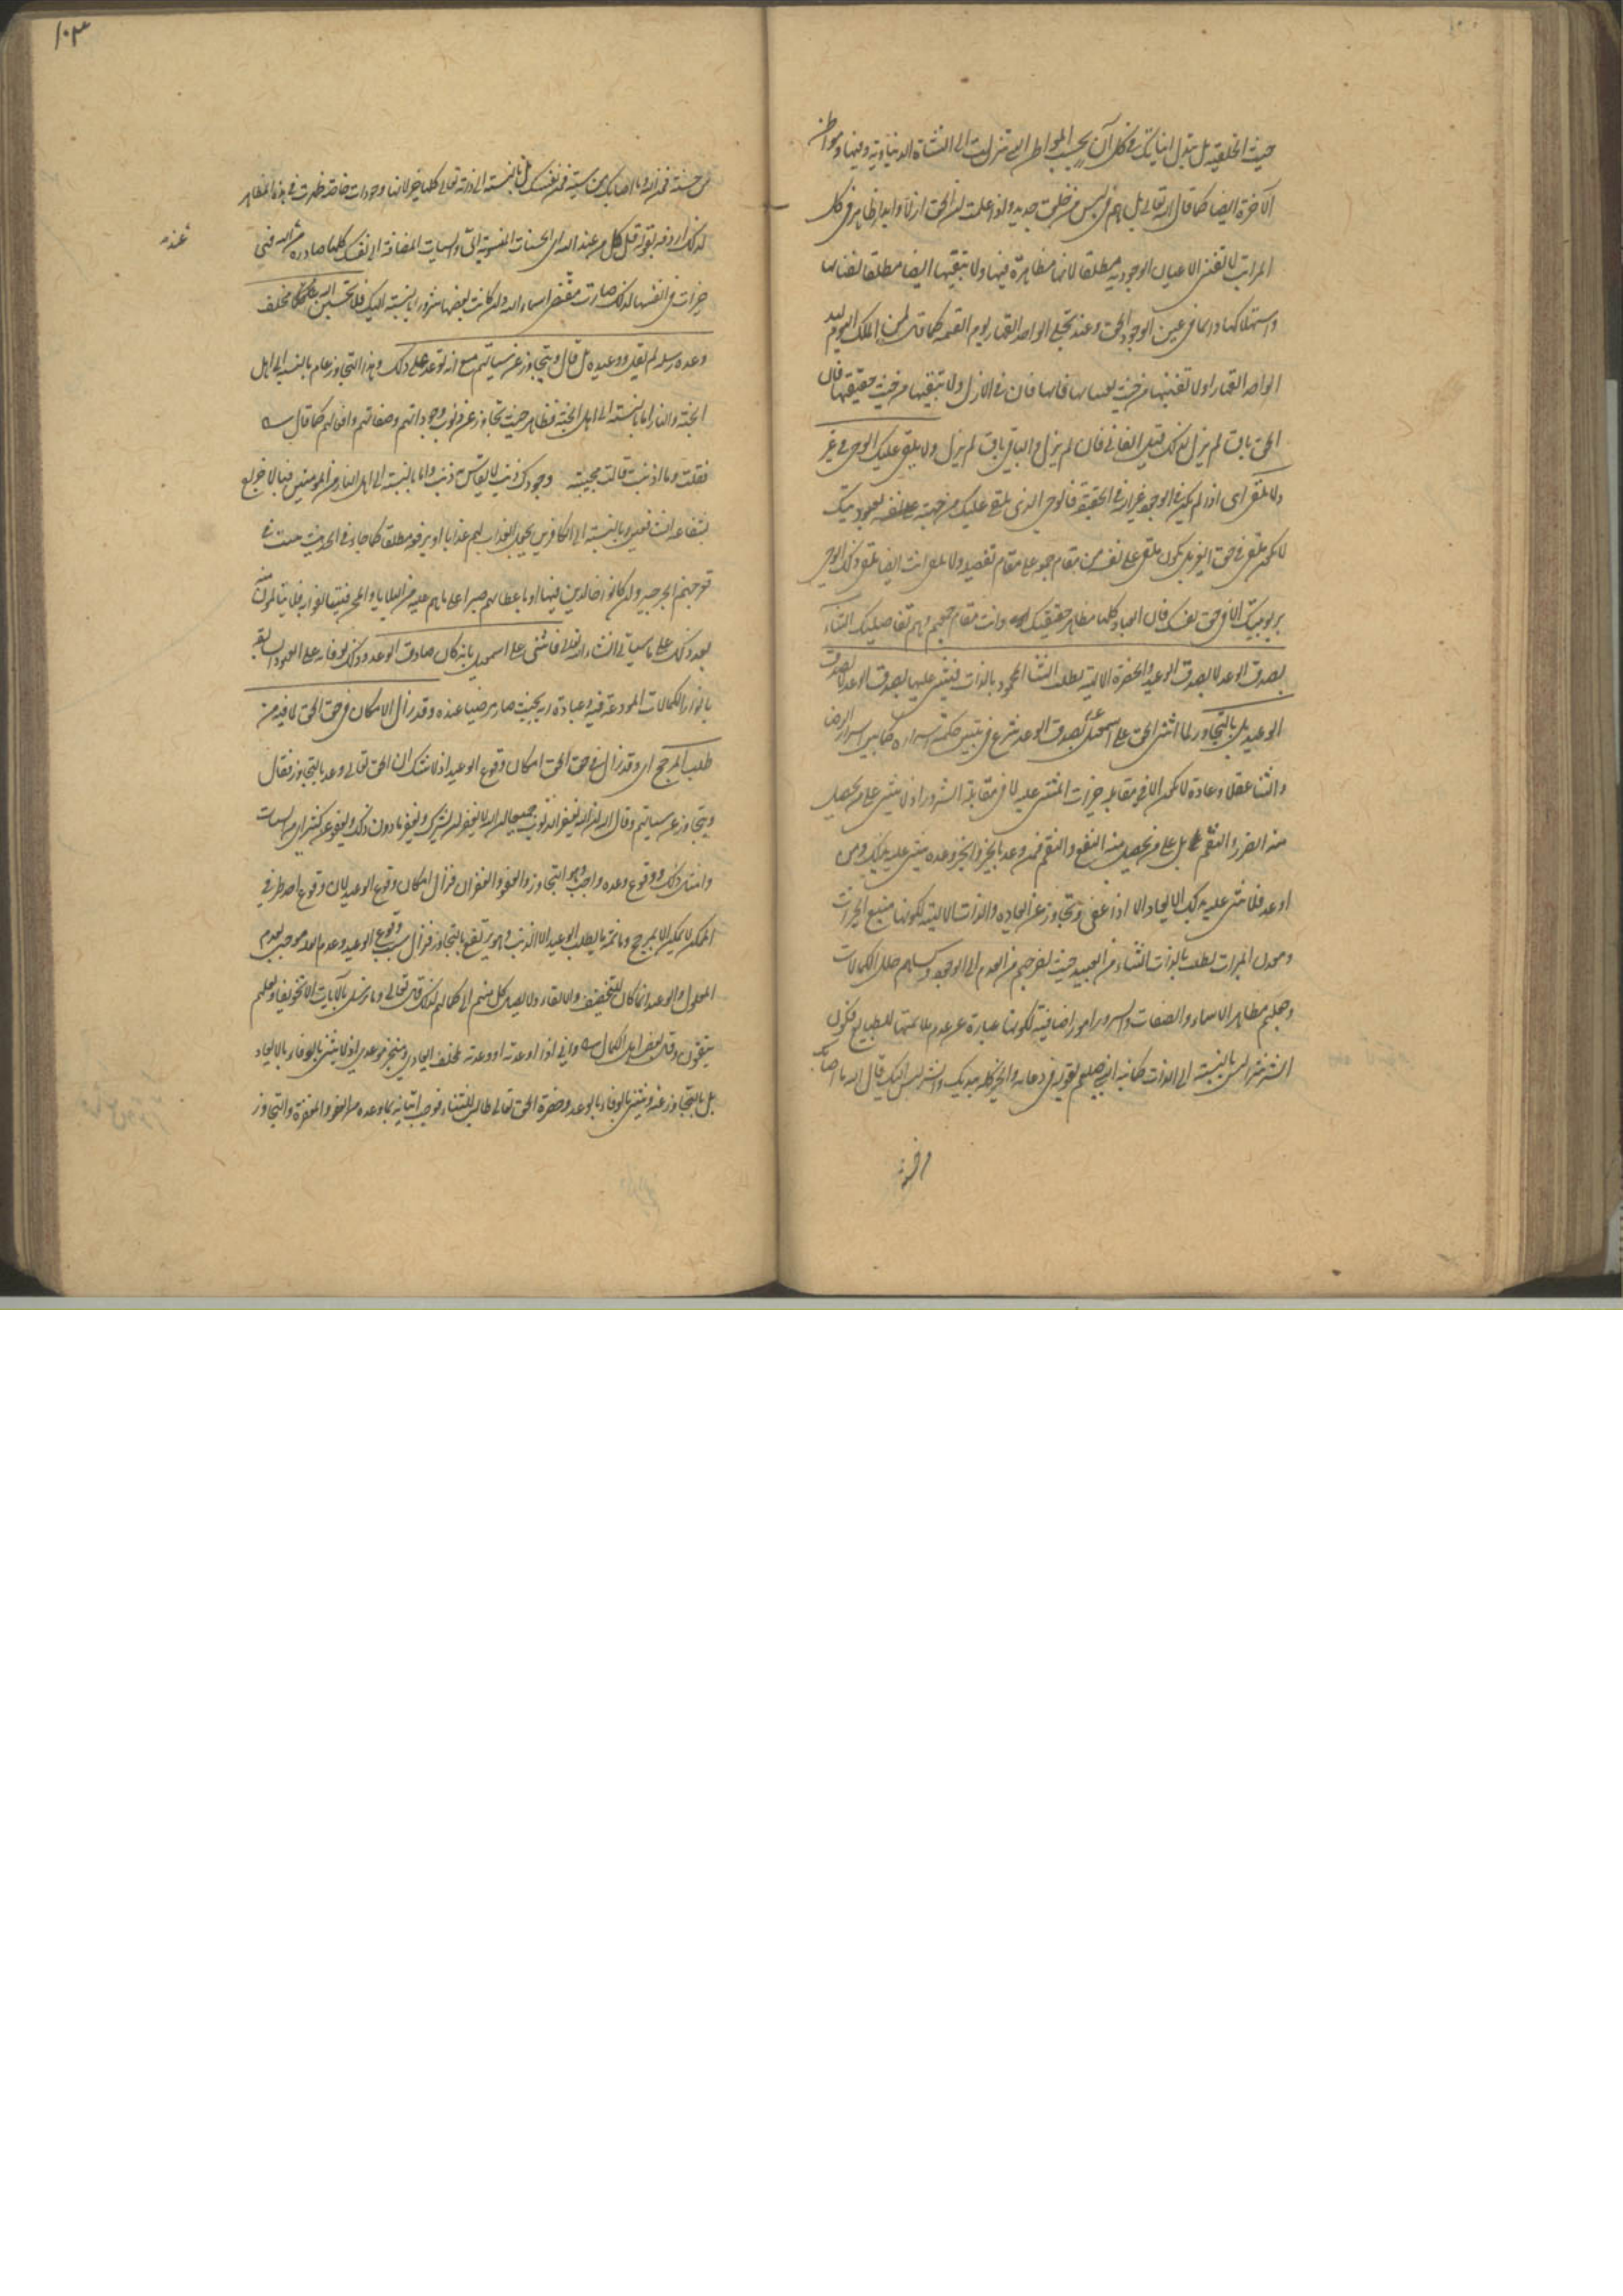 حيث الخلقية بل تبدل انياتك في كل آن بحسب المواطن التي تنزلت الى النشاة الدنياوية وفيها ومواطن
الآخرة ايضا كما قال الله تعالى بل هم في لبس من خلق جديد واذا علمت ان الحق ازلا وابدا ظاهر في كل
المراتب لا تفنى الاعيان الوجودية مطلقا لانها مظاهره فيها ولا تبقيها ايضا مطلقا لفنائها
واستهلاكها دائما في عين الوجود الحق وعند تجلي الواحد القهار يوم القيمة كما قال لمن الملك اليوم لله
الواحد القهار او لا تفنيها من حيث تعيناتها فانها فان في الازل ولا تبقيها من حيث حقيقتها فان
الحق باق لم يزل لذلك قيل الفاني فان لم يزل والباقي باق لم يزل ولا يلقى عليك الوحي في غير
ولا تلقي اى اذا لم يكن في الوجود غير الله في الحقيقة فالوحي الذي يلقى عليك من جهة عبوديتك
لا يمكن يلقى في حق الغير بل يكون يلقى على نفسه من مقام جمعه على مقام تفصيله ولا تلقي انت ايضا تلقي ذلك الوحي
بربوبيتك الا في حق نفسك فان العباد كلها مظاهر حقيقتك وانت مقام جمعهم وهم تفاصيلك الثناء
بصدق الوعد لا بصدق الوعيد والحضرة الالهية تطلب الثناء المحمود بالذات فيثنى عليها بصدق الوعد لا بصدق
الوعيد بل بالتجاوز لما اثنى الحق على اسمعيل عم بصدق الوعد شرع في تبيين حكمة اسراره كما بين اسرار الرضا
والثناء عقلا وعادة لا يمكن الا في مقابلة خيرات المثنى عليه لا في مقابلة الشرور اذ لا يثنى على من يحصل
منه الضرر والنقم بل على من يحصل منه النفع والنعم فمن وعد بالخير وانجز وعده يثنى عليه بذلك ومن
اوعد فلا يثنى عليه بذلك الايعاد الا اذا عفى وتجاوز عن ايعاده والذات الالهية لكونها منبع الخيرات
ومعدن المبرات تطلب بالذات الثناء من العبيد حيث اخرجهم من العدم الى الوجود وكساهم حلل الكمالات
وجعلهم مظاهر الاسماء والصفات والشرور امور اضافية لكونها عبارة عن عدم ملائمتها للطبايع فكون
الشر شرا ليس بالنسبة الى الذات كما نبه النبي صلعم بقوله في دعائه والخير كله بيديك والشر ليس اليك قال الله ما اصابك
من حسنة
١٠٣
من حسنة فمن الله وما اصابك من سيئة فمن نفسك بل بالنسبة الى ذاته تعالى كلها خير لانها وجودات خاصة ظهرت في هذه المظاهر
لذلك اردفه بقوله قل كل من عند الله اى الحسنات المنسوبة الى الله والسيات المضافة الى نفسك كلها صادرة من الله فهى
خيرات في انفسها لذلك صارت مقتضى اسماء الله وان كانت بعضها شرورا بالنسبة اليك فلا تحسبن الله مخلف
وعده رسله لم يقل ووعيده بل قال ويتجاوز عن سيئاتهم مع انه توعد على ذلك وهذا التجاوز عام بالنسبة الى اهل
الجنة والنار اما بالنسبة الى اهل الجنة فظاهر حيث تجاوز عن ذنوب وجوداتهم وصفاتهم وافعالهم كما قال
فقلت وما اذنبت قالت مجيبة وجودك ذنب لا يقاس به ذنب واما بالنسبة الى اهل النار من المؤمنين فبالاخراج
بشفاعة الشافعين وبالنسبة الى الكافرين بجعل العذاب لهم عذبا او برفعه مطلقا كما جاء في الحديث ينبت في
قعر جهنم الجرجير وان كانوا خالدين فيها او باعطائهم صبرا على ما هم عليه من البلايا والمحن فيتالفوا به فلا يتالمون منه
بعد ذلك على ما سياتي انشاء الله تعالى فاثنى على اسمعيل بانه كان صادق الوعد وذلك لوفائه على العهود السابقة
بابراز الكمالات المودعة فيه وعبادة ربه بحيث صار مرضيا عنده وقد زال الامكان في حق الحق لما فيه من
طلب المرجح اى وقد زال في حق الحق امكان وقوع الوعيد اذ لا شك ان الحق تعالى وعد بالتجاوز فقال
ويتجاوز عن سيئاتهم وقال ان الله يغفر الذنوب جميعا ان الله لا يغفر ان يشرك به ويغفر ما دون ذلك ويعفو عن كثير من السيات
وامثال ذلك ووقوع وعده واجب وهو التجاوز والعفو والغفران فزال امكان وقوع الوعيد لان وقوع احد طرفي
الممكن لا يمكن الا بمرجح وما ثم ما يطلب الوعيد الا الذنب وهو يرتفع بالتجاوز فزال سبب وقوع الوعيد وعدم العلة موجب لعدم
المعلول والوعيد انما كان للتخويف والاتقاء ولا يصل كل منهم الى كماله لذلك قال تعالى وما نرسل بالآيات الا تخويفا ولعلهم
يتقون وقال بعض اهل الكمال واني اذا اوعدته او وعدته لمخلف ايعادي ومنجز موعدي اذ لا يثنى بالوفاء بالايعاد
بل بالتجاوز عنه ويثنى بالوفاء بالوعد وحضرة الحق تعالى طالب للثناء فوجب اتيانه بما وعده من العفو والمغفرة والتجاوز